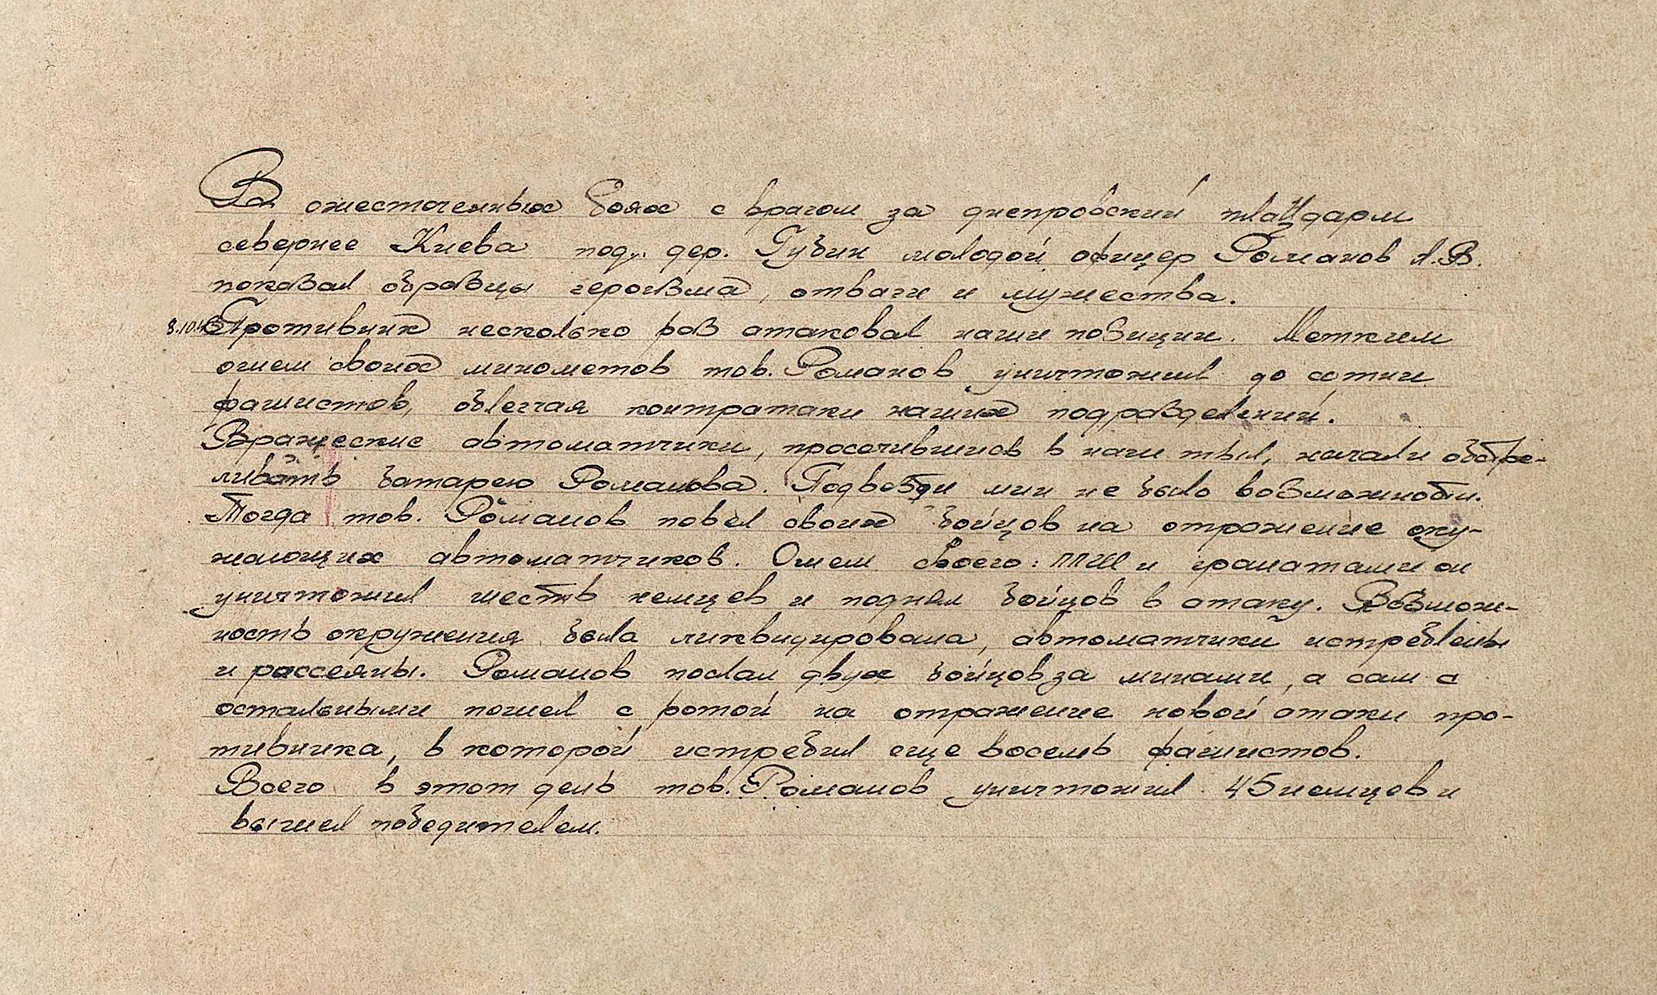 В ожесточенных боях с врагом за днепровский плацдарм
севернее Киева под дер. Губин молодой офицер Романов А.В.
показал образцы героизма, отваги и мужества.
8.10.43 Противник несколько раз атаковал наши позиции. Метким
огнем своих минометов тов. Романов уничтожил до сотни
фашистов, облегчая контратаки наших подразделений.
Вражеские автоматчики, просочившиеся в наш тыл, начали обстре-
ливать батарею Романова. Подвезти мин не было возможности.
Тогда тов. Романов повел своих бойцов на отражение окру-
жающих автоматчиков. Огнем своего ППШ и гранатами он
уничтожил шесть немцев и поднял бойцов в атаку. Возмож-
ность окружения была ликвидирована, автоматчики истреблены
и рассеяны. Романов послал двух бойцов за минами, а сам с
остальными пошел с ротой на отражение новой атаки про-
тивника, в которой истребил еще восемь фашистов.
Всего в этот день тов. Романов уничтожил 45 немцев и
вышел победителем.